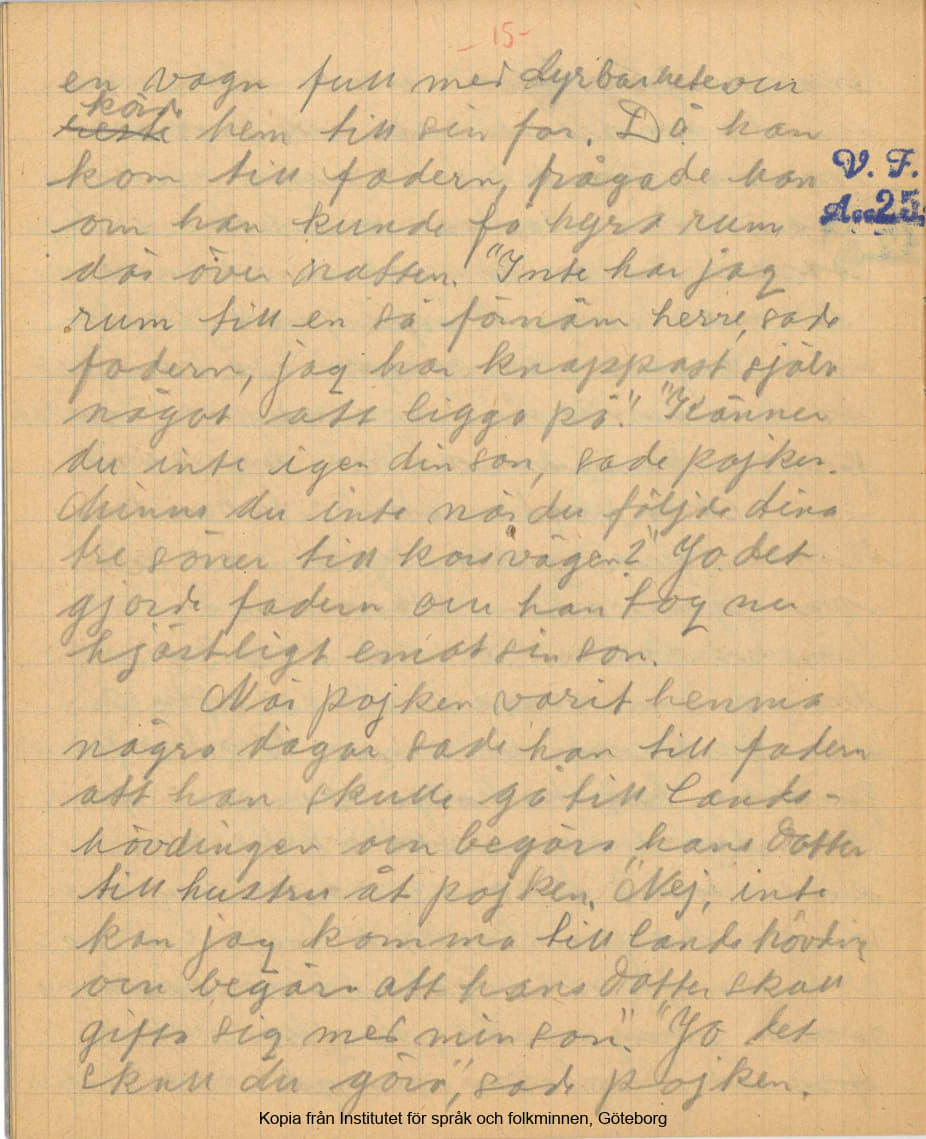 - 15 -
en vagn full med dyrbarheter och
körde
reste hem till sin far. Då han
kom till fadern, frågade han
V. F.
om han kunde få hyra rum
Acc 25
där över natten. "Inte har jag
rum till en så förnäm herre, sade
fadern, jag har knappast själv
något att ligga på." "Känner
du inte igen din son, sade pojken.
Minns du inte när du följde dina
tre söner till korsvägen?" Jo det
gjorde fadern och han tog nu
hjärtligt emot sin son.
När pojken varit hemma
några dagar sade han till fadern
att han skulle gå till lands-
hövdingen och begära hans dotter
till hustru åt pojken. "Nej, inte
kan jag komma till landshövdin
och begära att hans dotter skall
gifta sig med min son." "Jo det
skall du göra", sade pojken.
Kopia från Institutet för språk och folkminnen, Göteborg